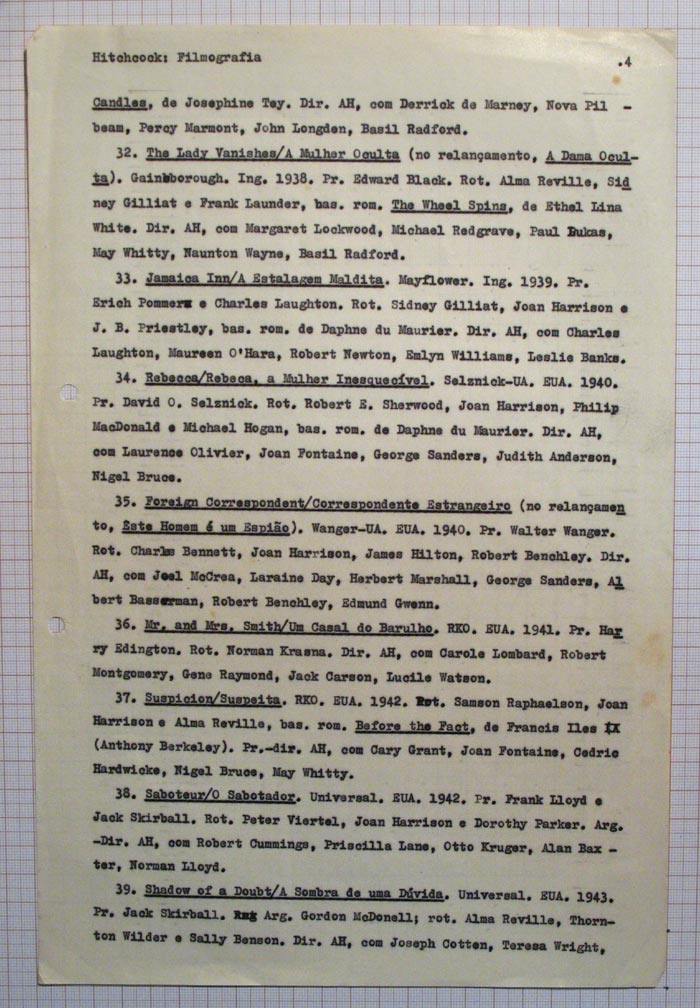 Hitchcock: Filmografia .4
Candles, de Josephine Tey. Dir. AH, com Derrick de Marney, Nova Pil -
beam, Percy Marmont, John Longden, Basil Radford.
32. The Lady Vanishes/A Mulher Oculta (no relançamento, A Dama Ocul-
ta). Gainsborough. Ing. 1938. Pr. Edward Black. Rot. Alma Reville, Sid
ney Gilliat e Frank Launder, bas. rom. The Wheel Spins, de Ethel Lina
White. Dir. AH, com Margaret Lockwood, Michael Redgrave, Paul Lukas,
May Whitty, Naunton Wayne, Basil Radford.
33. Jamaica Inn/A Estalagem Maldita. Mayflower. Ing. 1939. Pr.
Erich Pommer e Charles Laughton. Rot. Sidney Gilliat, Joan Harrison e
J. B. Priestley, bas. rom. de Daphne du Maurier. Dir. AH, com Charles
Laughton, Maureen O'Hara, Robert Newton, Emlyn Williams, Leslie Banks.
34. Rebecca/Rebeca, a Mulher Inesquecível. Selznick-UA. EUA. 1940.
Pr. David O. Selznick. Rot. Robert E. Sherwood, Joan Harrison, Philip
MacDonald e Michael Hogan, bas. rom. de Daphne du Maurier. Dir. AH,
com Laurence Olivier, Joan Fontaine, George Sanders, Judith Anderson,
Nigel Bruce.
35. Foreign Correspondent/Correspondente Estrangeiro (no relançamen
to, Este Homem é um Espião). Wanger-UA. EUA. 1940. Pr. Walter Wanger.
Rot. Charles Bennett, Joan Harrison, James Hilton, Robert Benchley. Dir.
AH, com Joel McCrea, Laraine Day, Herbert Marshall, George Sanders, Al
bert Basserman, Robert Benchley, Edmund Gwenn.
36. Mr. and Mrs. Smith/Um Casal do Barulho. RKO. EUA. 1941. Pr. Har
ry Edington. Rot. Norman Krasna. Dir. AH, com Carole Lombard, Robert
Montgomery, Gene Raymond, Jack Carson, Lucile Watson.
37. Suspicion/Suspeita. RKO. EUA. 1942. Rot. Samson Raphaelson, Joan
Harrison e Alma Reville, bas. rom. Before the Fact, de Francis Iles
(Anthony Berkeley). Pr.-dir. AH, com Cary Grant, Joan Fontaine, Cedric
Hardwicke, Nigel Bruce, May Whitty.
38. Saboteur/O Sabotador. Universal. EUA. 1942. Pr. Frank Lloyd e
Jack Skirball. Rot. Peter Viertel, Joan Harrison e Dorothy Parker. Arg.
-Dir. AH, com Robert Cummings, Priscilla Lane, Otto Kruger, Alan Bax -
ter, Norman Lloyd.
39. Shadow of a Doubt/A Sombra de uma Dúvida. Universal. EUA. 1943.
Pr. Jack Skirball. Arg. Gordon McDonell; rot. Alma Reville, Thorn-
ton Wilder e Sally Benson. Dir. AH, com Joseph Cotten, Teresa Wright,